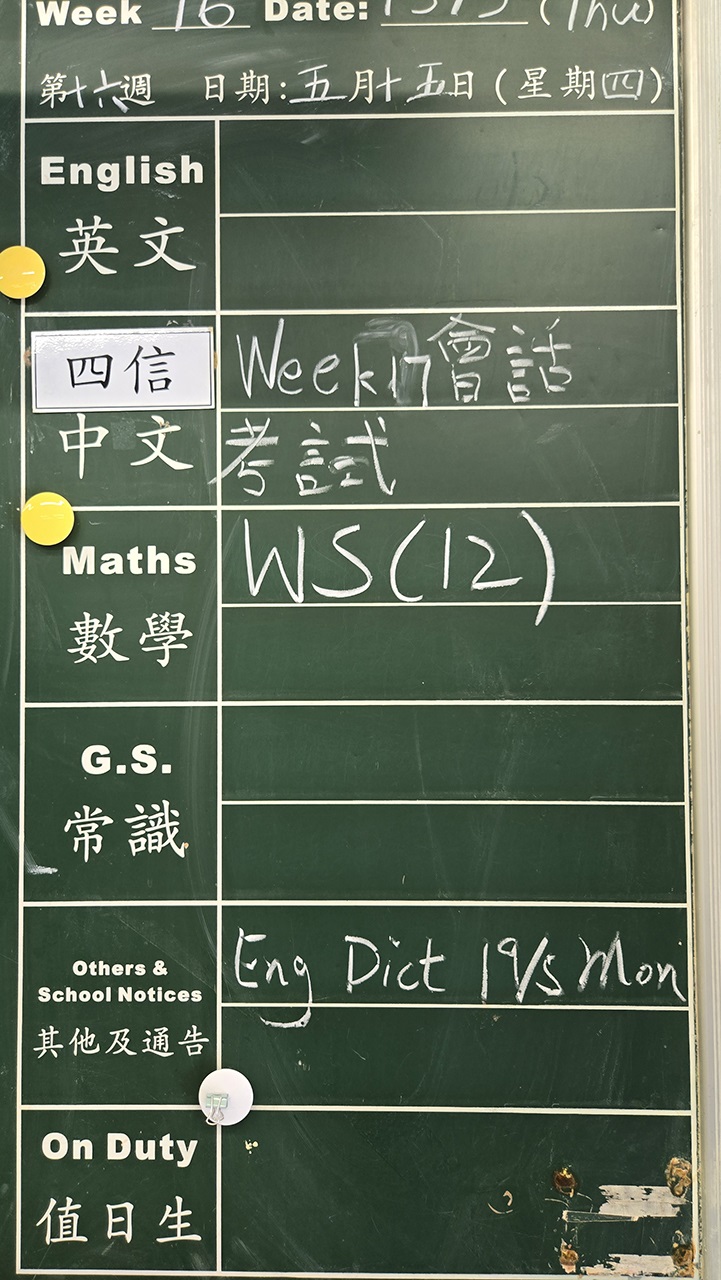 Week 16 Date: 15/5 (Thu)
第十六週 日期:五月十五日(星期四)
English
英文
四信 Week 17 會話
中文 考試
Maths WS(12)
數學
G.S.
常識
Others & Eng Dict 19/5 Mon
School Notices
其他及通告
On Duty
值日生